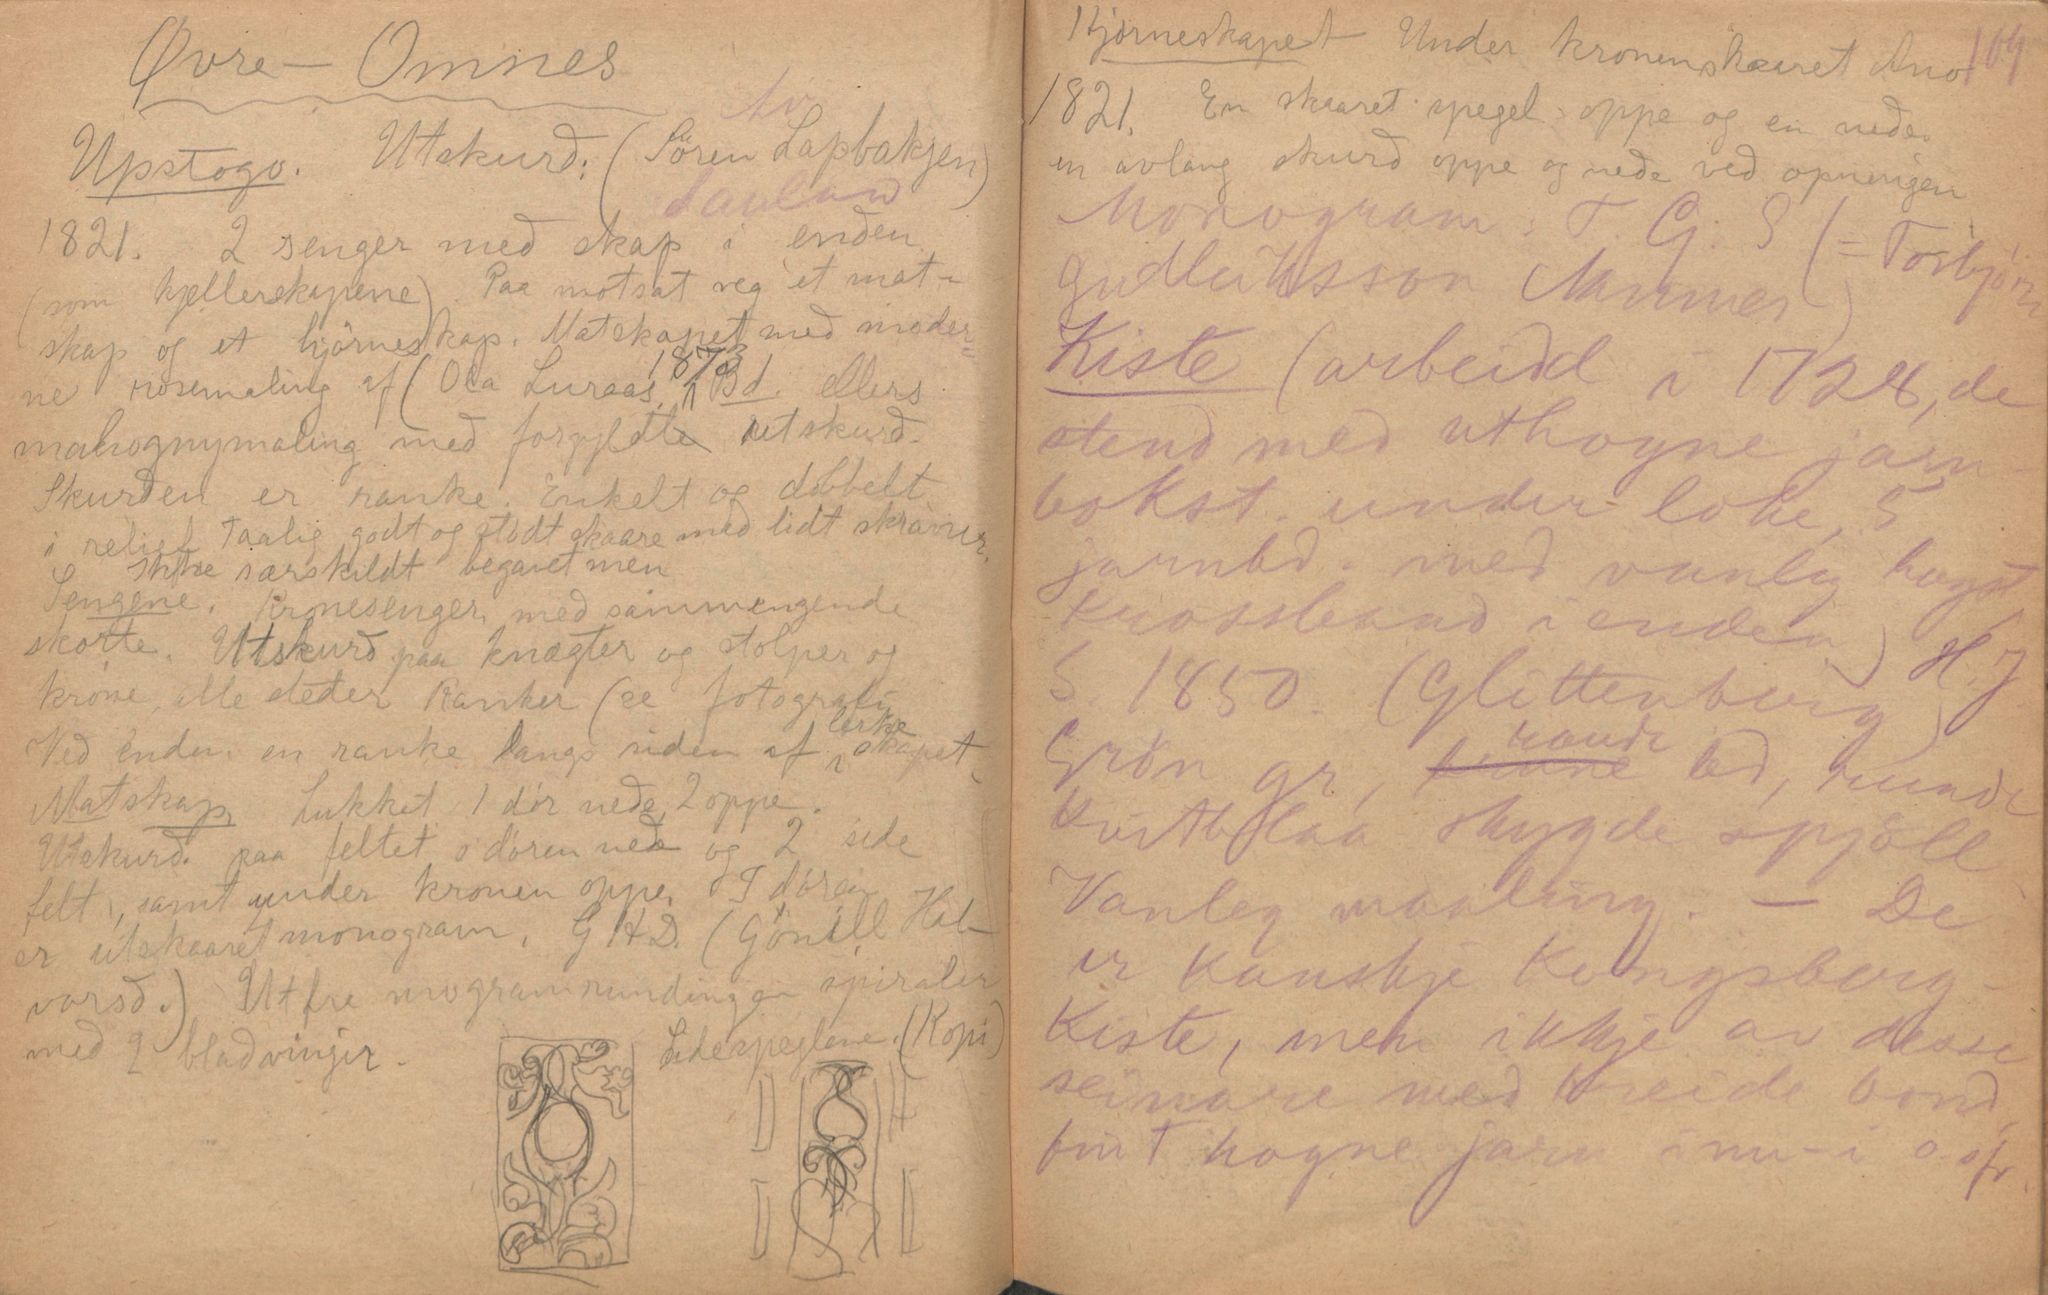 Øvre-Omnes
Av
Upstogo. Utskurð: (Søren Lapbakjen)
Sauland
1821. 2 senger með skap i enðen
(som kjellerskapene). Paa motsat veg et mat-
skap og et hjørneskap. Matskapet með moder-
1873
ne rosemaling af (Ola Luraas, Bd. ellers
mahognymaling með forgyldte utskurð.
Skurðen er ranke. Enkelt og dobbelt
i relief Taalig godt og stødt skaare með lidt skravér.
Ikke særskildt begavet men
Sengene. Kronesenger, með sammengende
skorte. Utskurð paa knægter og stolper og
krone, alle steder Ranker (se fotografi
Veð enden en ranke langs siden af skapet
Matskap. Lukket 1 dør neðe, 2 oppe.
Utskurð paa feltet i døren neðe og 2 side
felt, samt under kronen oppe. I døren
er utskaaret monogram. G H D. (Gönill Hal-
vorsð.) Ut fre mogramrundingen spiraler
með 2 blaðvinger. Sidespeglene. (Kopi)
169
Hjørneskapet Under kronenskaaret Ano
1821. En skaaret spegel oppe og en neðe.
en avlang skurð oppe og neðe veð opningen
Monogram: T. G. S (= Torbjörn
Gudleiksson Mannes)
Kiste (arbeidd i 1728, de
stend med uthogne jarn-
bokst. under loke, 5
jarnbd. med vanleg hogst
krossband i enden) H. J.
S. 1850. (Glittenberg)
raude
Grøn gr, bd, runde
kvitblaa skygde spjöll
Vanleg maaling. — De
er kanskje Kongsberg-
kiste, men ikkje av desse
seinare med breide bond,
fint hogne jarn inn-i o.sfr.